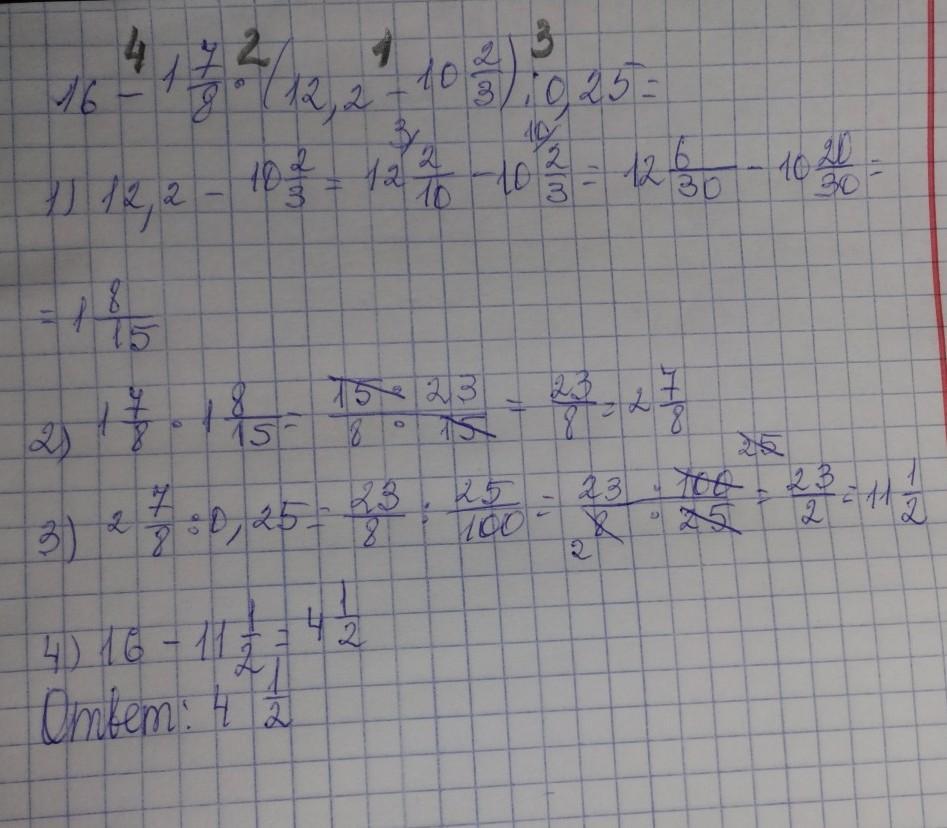 4 2 1 3
16 - 1 7/8 · (12,2 - 10 2/3) : 0,25 =
3/ 10/
1) 12,2 - 10 2/3 = 12 2/10 - 10 2/3 = 12 6/30 - 10 20/30 =
= 1 8/15
2) 1 7/8 · 1 8/15 = 15 · 23/8 · 15 = 23/8 = 2 7/8
25
3) 2 7/8 : 0,25 = 23/8 : 25/100 = 23 · 100/8 · 25 = 23/2 = 11 1/2
2
4) 16 - 11 1/2 = 4 1/2
Ответ: 4 1/2